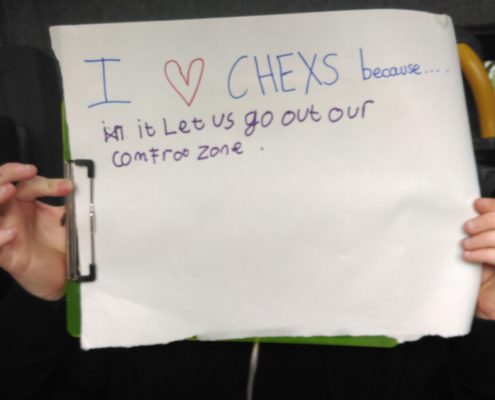 I ♡ CHEXS because....
it Let us go out our
comfroo zone .